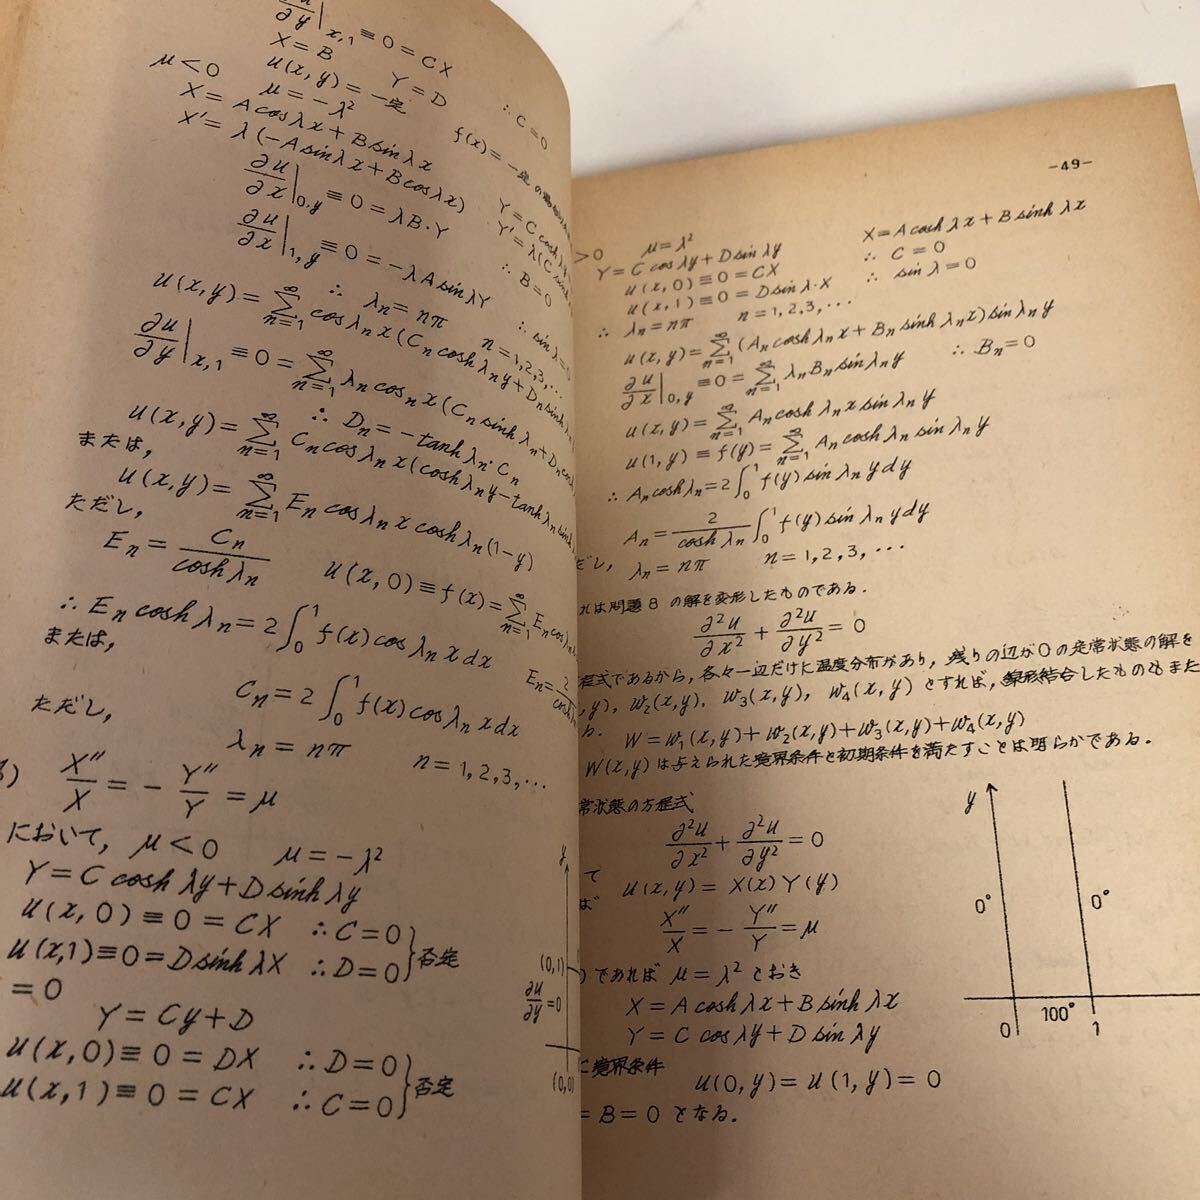 ∂u/∂y|x,1 ≡ 0 = CX ∴ C = 0
X = B Y = D
u(x, y) = 一定 f(x) = 一定の
μ < 0 μ = −λ²
X = A cos λx + B sin λx Y = C cosh λy
X′ = λ(−A sin λx + B cos λx) Y′ = λ(C sinh
∂u/∂x|0,y ≡ 0 = λB·Y ∴ B = 0
∂u/∂x|1,y ≡ 0 = −λA sin λY ∴ sin λ = 0
∴ λn = nπ n = 1, 2, 3, ···
u(x, y) = ∞∑n=1 cos λn x (Cn cosh λn y + Dn sinh λn
∂u/∂y|x,1 ≡ 0 = ∞∑n=1 λn cosn x (Cn sinh λn + Dn cosh
∴ Dn = −tanh λn · Cn
u(x, y) = ∞∑n=1 Cn cos λn x (cosh λn y − tanh λn sinh
または,
u(x, y) = ∞∑n=1 En cos λn x cosh λn (1−y)
ただし,
En = Cn/cosh λn u(x, 0) ≡ f(x) = ∞∑n=1 En cosh
∴ En cosh λn = 2∫₀¹ f(x) cos λn x dx En = 2/cosh
または,
Cn = 2∫₀¹ f(x) cos λn x dx
ただし,
λn = nπ n = 1, 2, 3, ···
) X″/X = − Y″/Y = μ
において, μ < 0 μ = −λ²
Y = C cosh λy + D sinh λy
u(x, 0) ≡ 0 = CX ∴ C = 0
u(x, 1) ≡ 0 = D sinh λX ∴ D = 0 } 否定
= 0
Y = Cy + D
u(x, 0) ≡ 0 = DX ∴ D = 0
u(x, 1) ≡ 0 = CX ∴ C = 0 } 否定
y
(0, 1)
∂u/∂y = 0
(0, 0)
-49-
> 0 μ = λ² X = A cosh λx + B sinh λx
Y = C cos λy + D sin λy
u(x, 0) ≡ 0 = CX ∴ C = 0
u(x, 1) ≡ 0 = D sin λ·X ∴ sin λ = 0
∴ λn = nπ n = 1, 2, 3, ···
u(x, y) = ∞∑n=1 (An cosh λn x + Bn sinh λn x) sin λn y
∂u/∂x|0,y ≡ 0 = ∞∑n=1 λn Bn sin λn y ∴ Bn = 0
u(x, y) = ∞∑n=1 An cosh λn x sin λn y
u(1, y) ≡ f(y) = ∞∑n=1 An cosh λn sin λn y
∴ An cosh λn = 2∫₀¹ f(y) sin λn y dy
An = 2/cosh λn ∫₀¹ f(y) sin λn y dy
だし, λn = nπ n = 1, 2, 3, ···
れは問題 8 の解を変形したものである.
∂²u/∂x² + ∂²u/∂y² = 0
程式であるから, 各々一辺だけに温度分布があり, 残りの辺が0の定常状態の解を
, y), w₂(x, y), w₃(x, y), w₄(x, y) とすれば, 線形結合したものもまた
W = w₁(x, y) + w₂(x, y) + w₃(x, y) + w₄(x, y)
W(x, y) は与えられた境界条件と初期条件を満たすことは明らかである.
常状態の方程式
∂²u/∂x² + ∂²u/∂y² = 0
て
u(x, y) = X(x) Y(y)
ば
X″/X = − Y″/Y = μ
) であれば μ = λ² とおき
X = A cosh λx + B sinh λx
Y = C cos λy + D sin λy
に境界条件
u(0, y) = u(1, y) = 0
= B = 0 となる.
y
0° 0°
100°
0 1